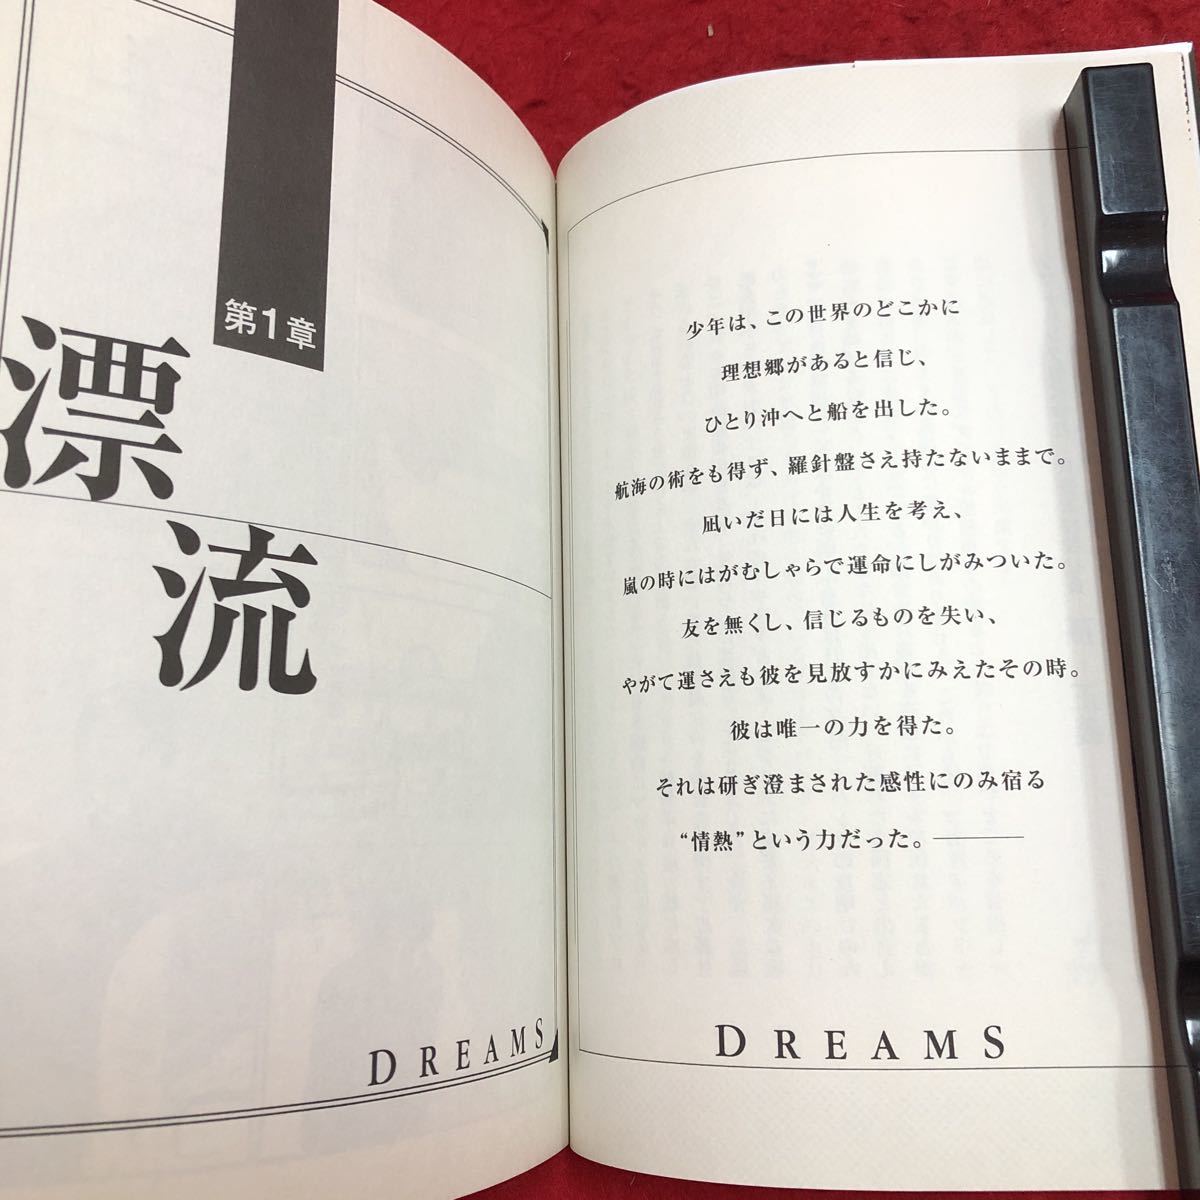 第1章
漂流
DREAMS
少年は、この世界のどこかに
理想郷があると信じ、
ひとり沖へと船を出した。
航海の術をも得ず、羅針盤さえ持たないままで。
凪いだ日には人生を考え、
嵐の時にはがむしゃらで運命にしがみついた。
友を無くし、信じるものを失い、
やがて運さえも彼を見放すかにみえたその時。
彼は唯一の力を得た。
それは研ぎ澄まされた感性にのみ宿る
“情熱”という力だった。――――
DREAMS